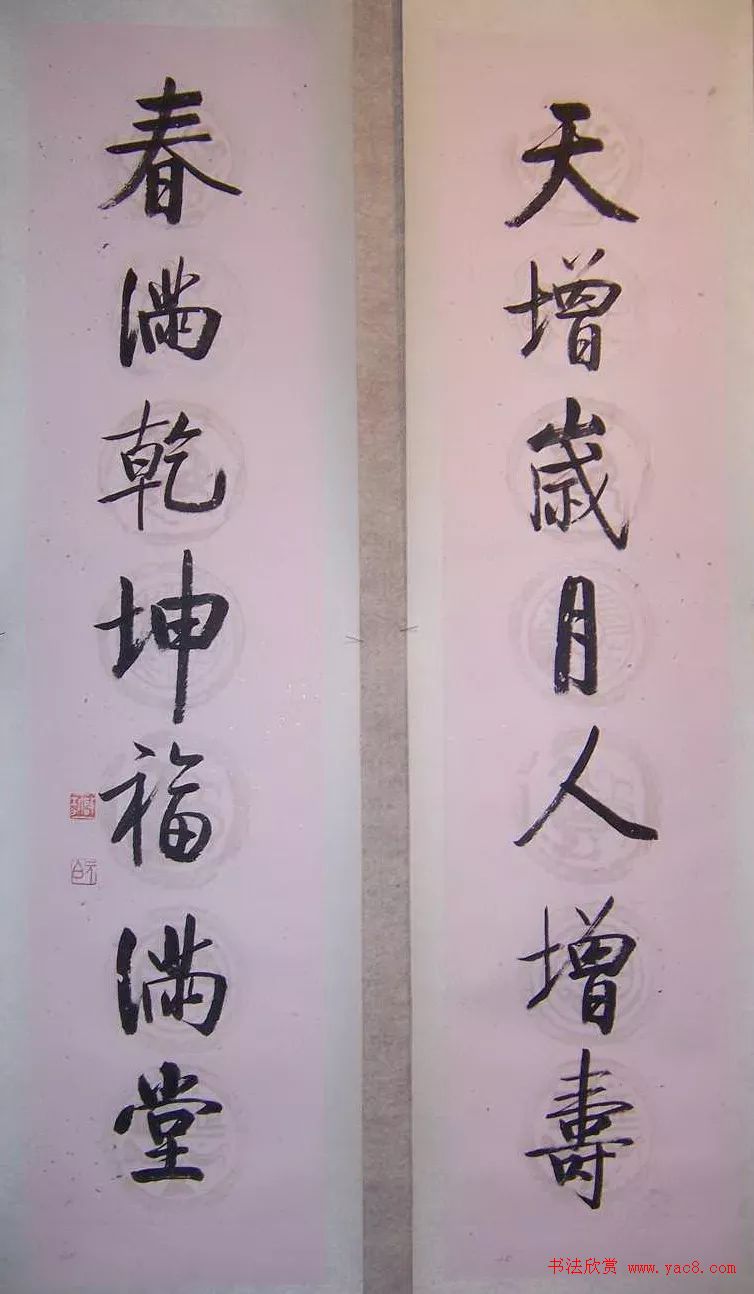 天增歲月人增壽
春滿乾坤福滿堂
书法欣赏 www.yac8.com